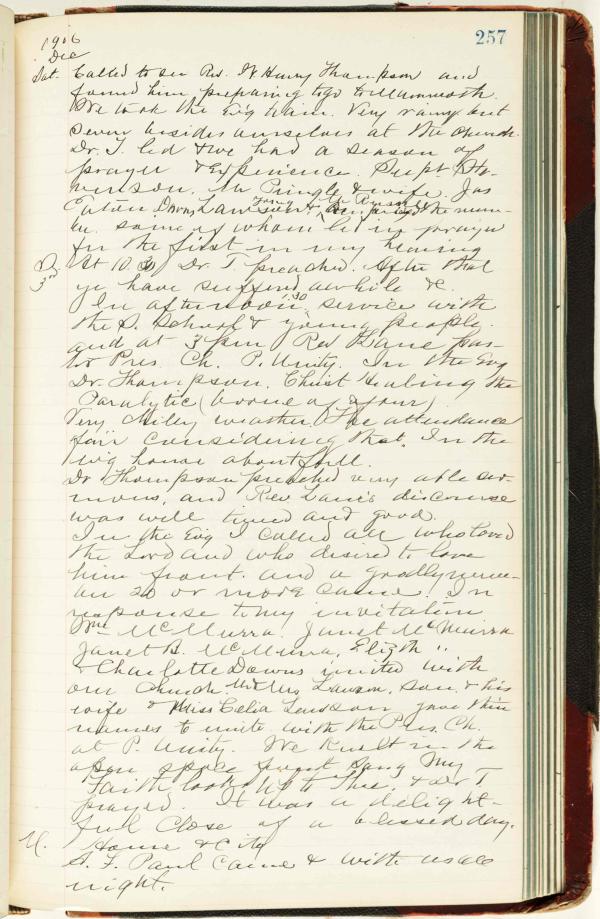 257
1906
Dec
Sat. Called to see Rev. W Henry Thompson and
found him preparing to go to Mammoth.
We took the Ev'g train. Very rainy but
seven besides ourselves at the church.
Dr. T. led & we had a season of
prayer & experience. Supt
Mr Pringle & wife. Jas
Eaton Downs, Lawson & young Mr the num-
ber. some of whom led in prayer
for the first in my hearing
At 10.30 Dr. T. preached. After that
ye have suffered awhile &c.
In afternoon 1.30 service with
the S. School & young people.
and at 3 pm Rev Lane Pas-
tor Pres. Ch. P. Unity. In the Evg
Dr. Thompson. Christ Healing the
Paralytic (borne of four)
Very weather. The attendance
fair considering that. In the
ev'g house about full.
Dr Thompson preached very able ser-
mons, and Rev Lane's discourse
was well timed and good.
In the Evg I called all who loved
the Lord and who desired to love
him front. and a goodly number
an 50 or more came. In
response to my invitation
Wm McMurra. Janet McMurra
Janet B. McMurra, Elizth "
& Charlotte Downs united with
our Church. Mr & Mrs Lawson, son & his
wife & Miss Celia Lawson gave their
names to unite with the Pres. Ch.
at P. Unity. We knelt in the
open space front sang My
Faith looks up to Thee, & Dr T
prayed. It was a delight-
ful close of a blessed day.
M. Home & City
S. F. Paul came & with us all
night.